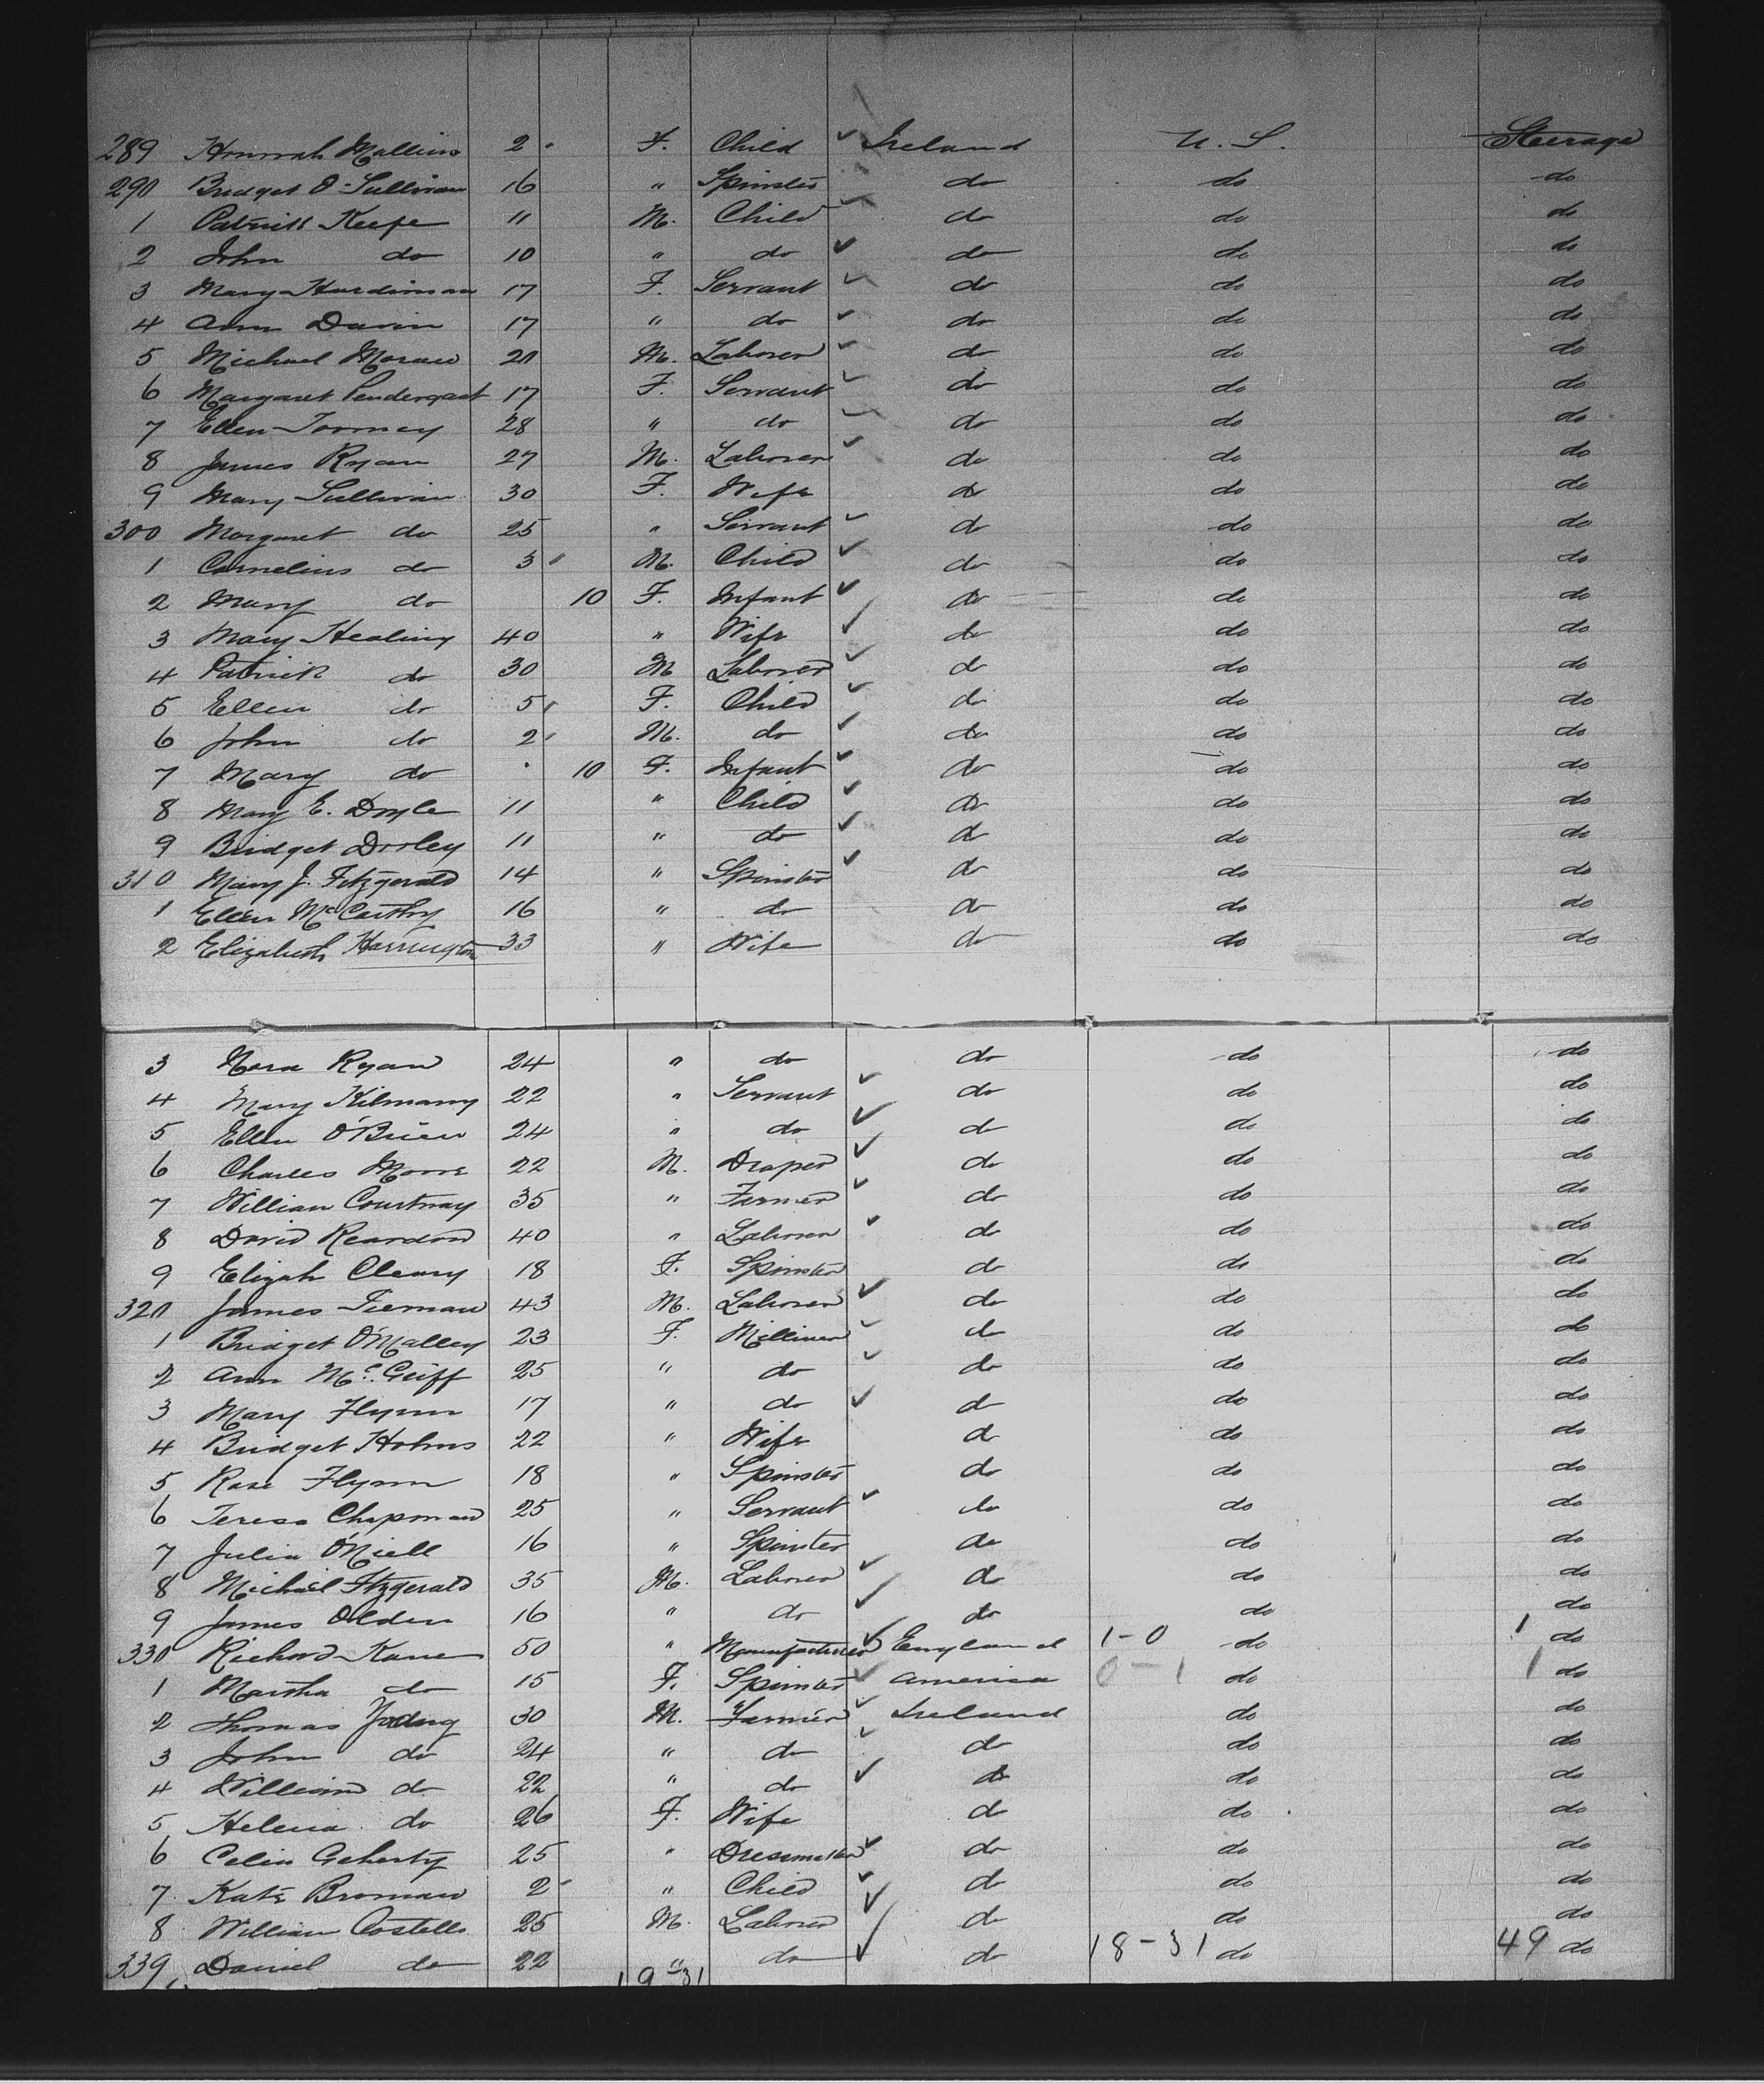 289 Hannah Mullins 2 F. Child ✓ Ireland U. S. Steerage
290 Bridget O'Sullivan 16 " Spinster do do do
1 Patrick Keefe 11 M. Child do do do
2 John do 10 " do ✓ do do do
3 Mary Hardiman 17 F. Servant ✓ do do do
4 Ann Davin 17 " do ✓ do do do
5 Michael Moran 20 M. Laborer ✓ do do do
6 Margaret Pendergast 17 F. Servant ✓ do do do
7 Ellen Toomey 28 " do ✓ do do do
8 James Ryan 27 M. Laborer ✓ do do do
9 Mary Sullivan 30 F. Wife do do do
300 Margaret do 25 " Servant ✓ do do do
1 Cornelius do 3 M. Child ✓ do do do
2 Mary do 10 F. Infant ✓ do do do
3 Mary Healing 40 " Wife ✓ do do do
4 Patrick do 30 M Laborer ✓ do do do
5 Ellen do 5 F. Child ✓ do do do
6 John do 2 M. do ✓ do do do
7 Mary do 10 F. Infant ✓ do do do
8 Mary E. Doyle 11 " Child ✓ do do do
9 Bridget Dooley 11 " do ✓ do do do
310 Mary J. Fitzgerald 14 " Spinster ✓ do do do
1 Ellen McCarthy 16 " do do do do
2 Elizabeth Harrington 33 " Wife do do do
3 Nora Ryan 24 " do do do do
4 Mary Kilmany 22 " Servant ✓ do do do
5 Ellen O'Brien 24 " do ✓ do do do
6 Charles Moore 22 M. Draper ✓ do do do
7 William Courtnay 35 " Farmer ✓ do do do
8 David Reardon 40 " Laborer ✓ do do do
9 Elizah Cleary 18 F. Spinster do do do
320 James Tiernan 43 M. Laborer ✓ do do do
1 Bridget O'Malley 23 F. Milliner ✓ do do do
2 Ann Mc. Griff 25 " do ✓ do do do
3 Mary Flynn 17 " do ✓ do do do
4 Bridget Holms 22 " Wife do do do
5 Rose Flynn 18 " Spinster do do do
6 Teresa Chapman 25 " Servant ✓ do do do
7 Julia O'Niell 16 " Spinster do do do
8 Michael Fitzgerald 35 M. Laborer ✓ do do do
9 James Olden 16 " do ✓ do do do
330 Richard Kane 50 " Manufacturer ✓ England 1-0 do 1 do
1 Martha do 15 F. Spinster ✓ America 0-1 do 1 do
2 Thomas Young 30 M. Farmer ✓ Ireland do do
3 John do 24 " do ✓ do do do
4 William do 22 " do ✓ do do do
5 Helena do 26 F. Wife do do do
6 Celia Geherty 25 " Dressmaker ✓ do do do
7 Kate Brosnan 2 " Child ✓ do do do
8 William Costello 25 M. Laborer ✓ do do do
339 Daniel do 22 " do ✓ do 18-31 do 49 do
19-31